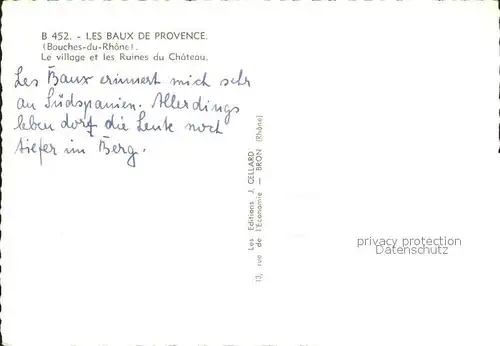 B 452. - LES BAUX DE PROVENCE.
(Bouches-du-Rhône).
Le village et les Ruines du Château.
Les Baux erinnert mich sehr
an Südspanien. Allerdings
leben dort die Leute noch
tiefer im Berg.
Les Editions J. CELLARD
13, rue de l'Economie — BRON (Rhône)
privacy protection
Datenschutz